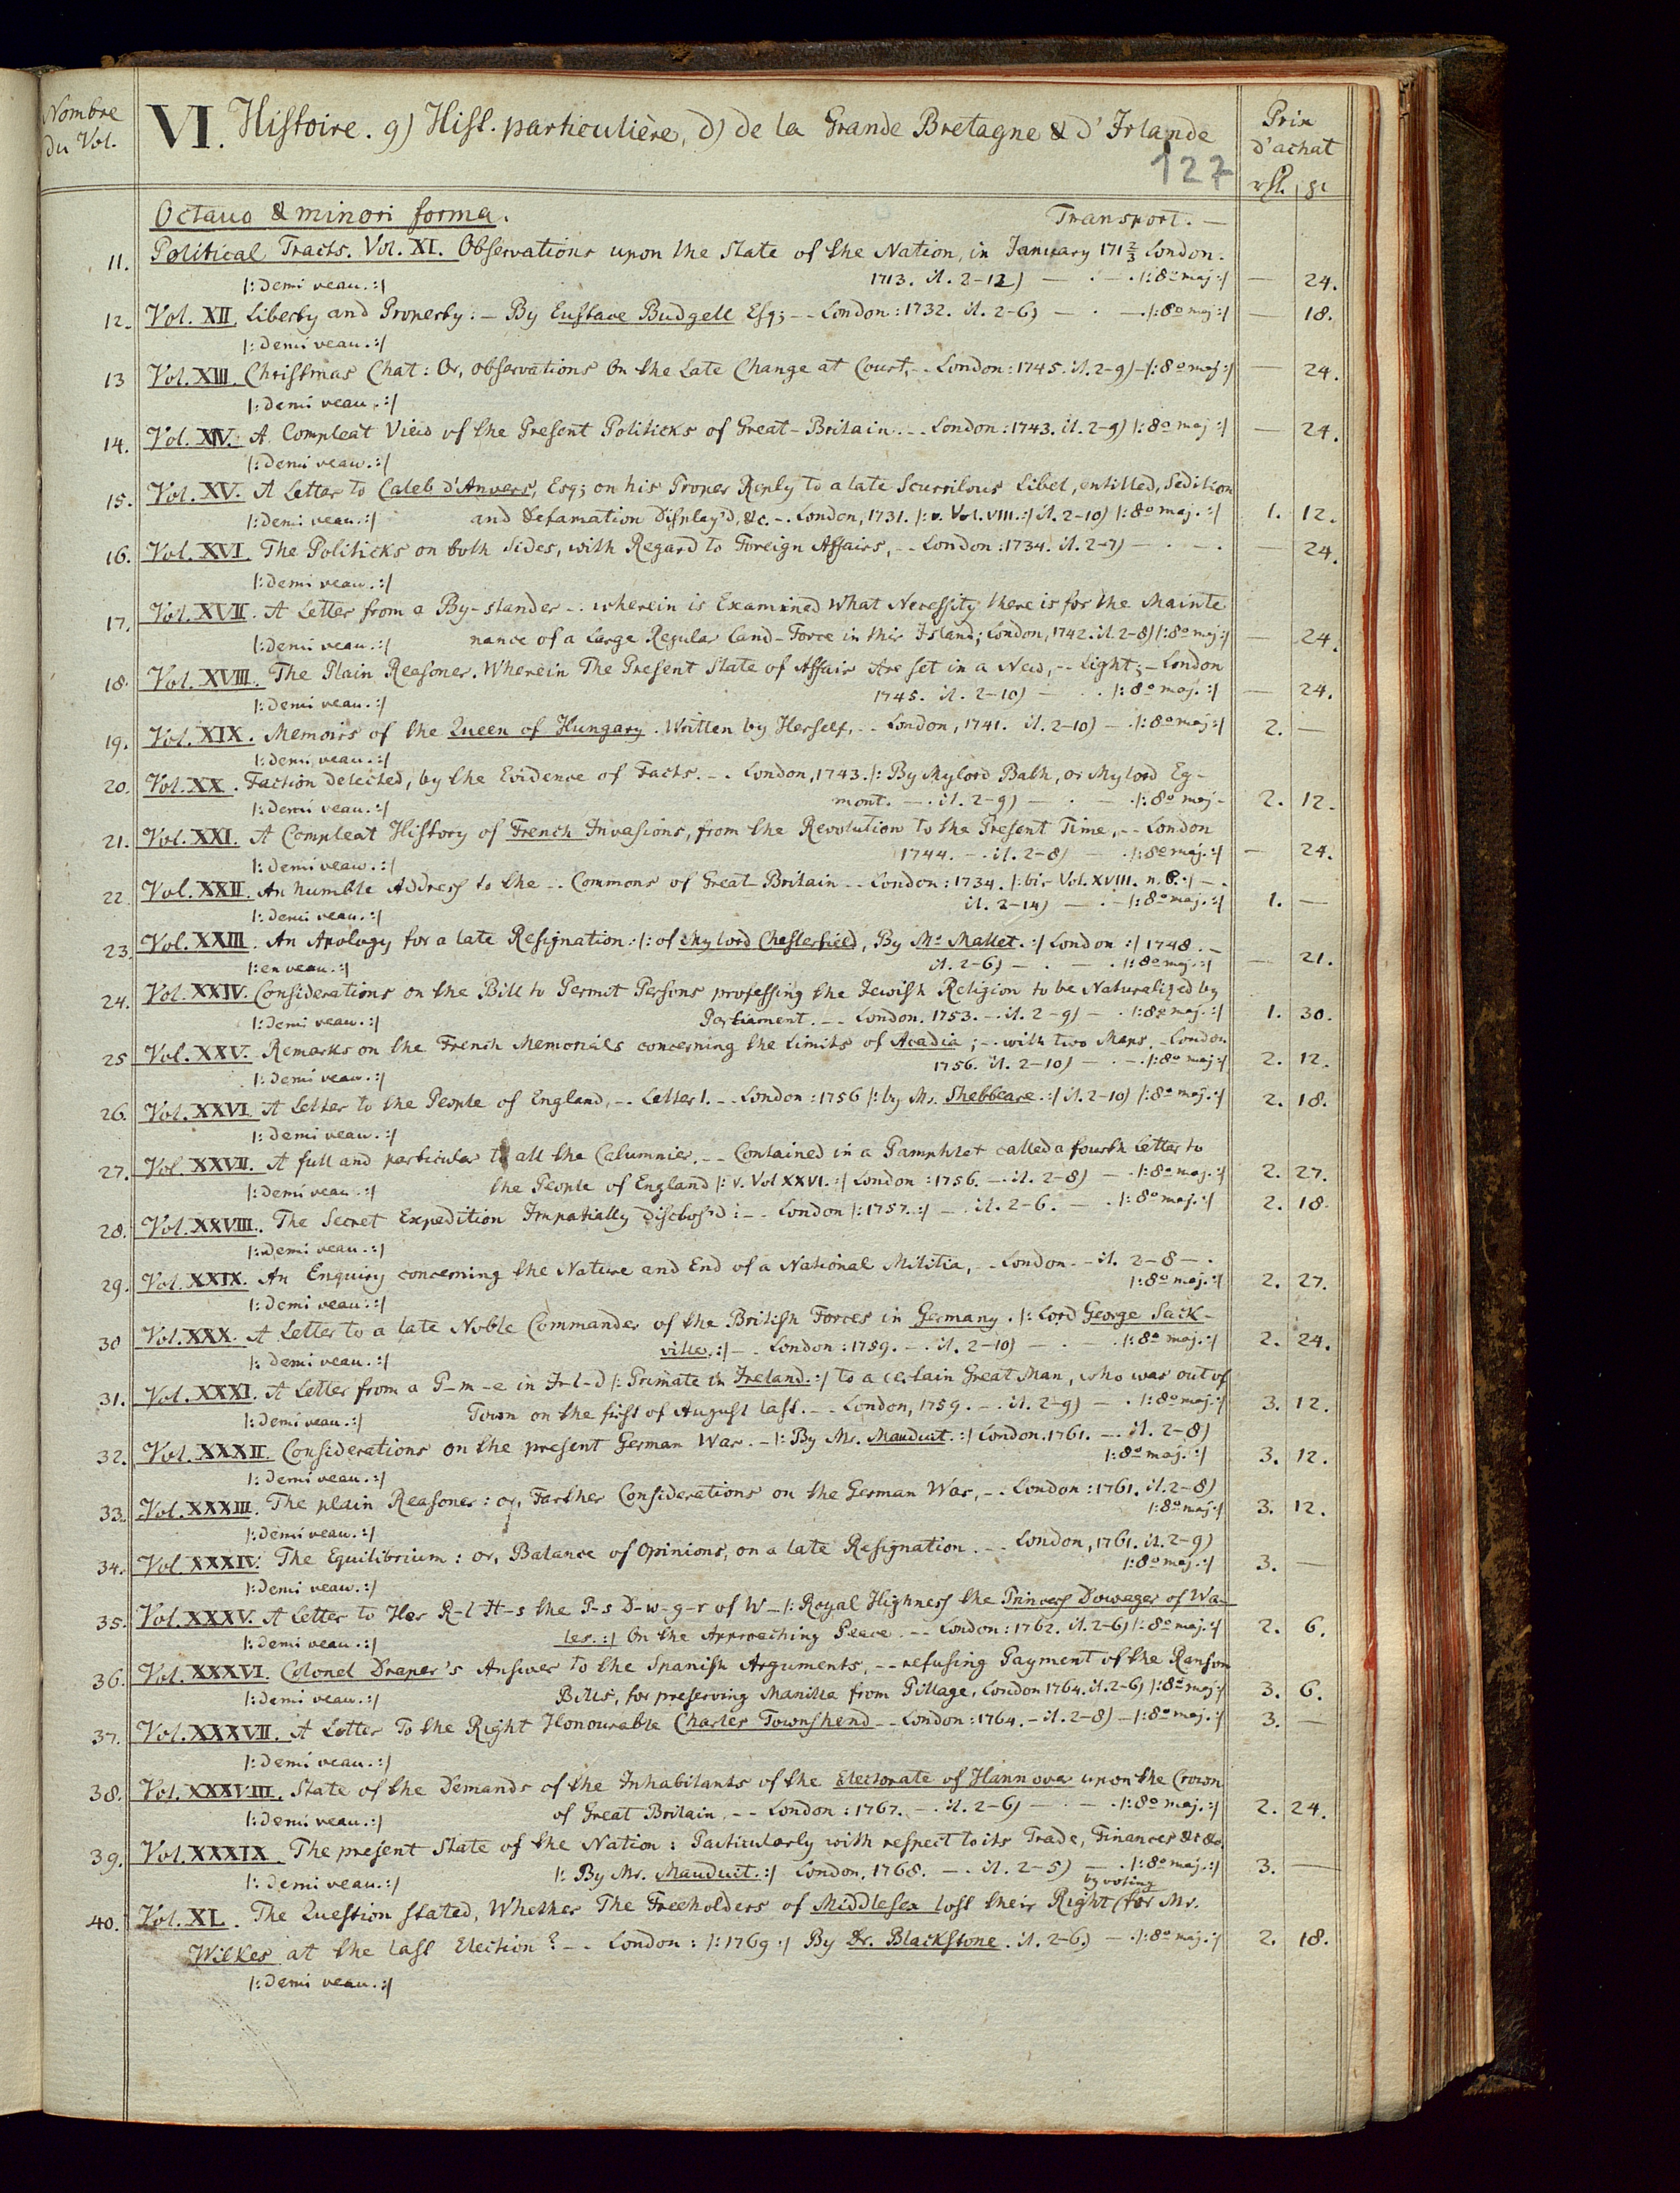 Nombre
du Vol.
VI. Histoire. g) Hist. particulière, d) de la Grande Bretagne & d'Irlande
127
Prix
d'achat
Octavo & minori forma. Transport. —
11. Political Tracts. Vol. XI. Observations upon the State of the Nation, in January 171 2/3 London.
|: Demi veau. :| 1713. it. 2-12) — . — . |: 8o maj :| — 24.
12. Vol. XII. Liberty and Property: — By Eustace Budgell Esq; -- London: 1732. it. 2-6) — . — . |: 8o maj :| — 18.
|: Demi veau. :|
13 Vol. XIII. Christmas Chat: Or, Observations On the Late Change at Court, -. London: 1745. it. 2-9) — |: 8o maj :| — 24.
|: Demi veau. :|
14. Vol. XIV. A Compleat View of the Present Politicks of Great-Britain. -. London: 1743. it. 2-9) |: 8o maj :| — 24.
|: Demi veau. :|
15. Vol. XV. A Letter to Caleb d'Anvers, Esq; on his Proper Reply to a late Scurrilous Libel, entitled, Sedition
|: Demi veau. :| and Defamation Display'd, &c. -. London, 1731. |: v. Vol. VIII. :| it. 2-10) |: 8o maj. :| 1. 12.
16. Vol. XVI. The Politicks on both Sides, with Regard to Foreign Affairs, -- London: 1734. it. 2-7) — . — . — 24.
|: Demi veau. :|
17. Vol. XVII. A Letter from a By-stander -. wherein is Examined What Necessity there is for the Mainte
|: Demi veau. :| nance of a Large Regular Land-Force in this Island; London, 1742. it. 2-8) |: 8o maj :| — 24.
18. Vol. XVIII. The Plain Reasoner. Wherein The Present State of Affair Are set in a New, -- Light; — London
|: Demi veau. :| 1745. it. 2-10) — . . |: 8o maj. :| — 24.
19. Vol. XIX. Memoirs of the Queen of Hungary. Written by Herself, -. London, 1741. it. 2-10) — . |: 8o maj :| 2. —
|: Demi veau. :|
20. Vol. XX. Faction detected, by the Evidence of Facts. -. London, 1743. |: By Mylord Bath, or Mylord Eg-
|: Demi veau. :| mont. — . it. 2-9) — . — . |: 8o maj - 2. 12.
21. Vol. XXI. A Compleat History of French Invasions, from the Revolution to the Present Time, -- London
|: Demi veau. :| 1744. — . it. 2-8) — . |: 8o maj. :| — 24.
22. Vol. XXII. An humble Address to the -. Commons of Great-Britain -. London: 1734. |: bis Vol. XVIII. n. 8. :| — .
|: Demi veau. :| it. 2-14) — . — |: 8o maj. :| 1. —
23. Vol. XXIII. An Apology for a late Resignation: |: of Mylord Chesterfield, By Mr Mallet. :| London :| 1748. —
|: en veau. :| it. 2-6) — . — . |: 8o maj. :| — 21.
24. Vol. XXIV. Considerations on the Bill to Permit Persons professing the Jewish Religion to be Naturalized by
|: Demi veau. :| Parliament. -- London. 1753. — . it. 2-9) — . |: 8o maj. :| 1. 30.
25 Vol. XXV. Remarks on the French Memorials concerning the Limits of Acadia; -. with two Maps. — London
|: Demi veau. :| 1756. it. 2-10) — . — . |: 8o maj :| 2. 12.
26. Vol. XXVI. A Letter to the People of England, -. Letter 1. -. London: 1756 |: by Mr. Shebbeare. :| it. 2-10) |: 8o maj. :| 2. 18.
|: Demi veau. :|
27. Vol. XXVII. A full and particular to all the Calumnies. -- Contained in a Pamphlet called a fourth Letter to
|: Demi veau. :| the People of England |: v. Vol XXVI. :| London: 1756. — . it. 2-8) — . |: 8o maj. :| 2. 27.
28. Vol. XXVIII. The Secret Expedition Impatially disclos'd: -. London |: 1757. :| — . it. 2-6. — . |: 8o maj. :| 2. 18.
|: Demi veau. :|
29. Vol. XXIX. An Enquiry concerning the Nature and End of a National Militia, -. London. - it. 2-8 — .
|: Demi veau. :| |: 8o maj. :| 2. 27.
30 Vol. XXX. A Letter to a late Noble Commander of the British Forces in Germany. |: Lord George Sack-
|: Demi veau. :| ville. :| — . London: 1759. — . it. 2-10) — . . |: 8o maj. :| 2. 24.
31. Vol. XXXI. A Letter from a P-m-e in Ir-l-d |: Primate in Ireland. :| to a certain Great Man, who was out of
|: Demi veau. :| Town on the first of August last. -. London, 1759. — . it. 2-9) — . |: 8o maj :| 3. 12.
32. Vol. XXXII. Considerations on the present German War. — |: By Mr. Mauduit. :| London. 1761. — . it. 2-8)
|: Demi veau. :| |: 8o maj. :| 3. 12.
33. Vol. XXXIII. The plain Reasoner: or, Farther Considerations on the German War, -. London: 1761. it. 2-8)
|: Demi veau. :| |: 8o maj :| 3. 12.
34. Vol. XXXIV. The Equilibrium: or, Balance of Opinions, on a late Resignation. -. London, 1761. it. 2-9)
|: Demi veau. :| |: 8o maj. :| 3. —
35. Vol. XXXV. A Letter to Her R-l H-s the P-s D-w-g-r of W- |: Royal Highness the Princess Dowager of Wa-
|: Demi veau. :| les. :| On the Approaching Peace. -. London: 1762. it. 2-6) |: 8o maj. :| 2. 6.
36. Vol. XXXVI. Colonel Draper's Answer to the Spanish Arguments, -- refusing Payment of the Ransom
|: Demi veau. :| Bills, for preserving Manilla from Pillage, London 1764. it. 2-6) |: 8o maj :| 3. 6.
37. Vol. XXXVII. A Letter To the Right Honourable Charles Townshend -. London: 1764. — it. 2-8) — |: 8o maj. :| 3. —
|: Demi veau. :|
38. Vol. XXXVIII. State of the Demands of the Inhabitants of the Electorate of Hannover upon the Crown
|: Demi veau. :| of Great Britain. -- London: 1767. — . it. 2-6) — . — . |: 8o maj. :| 2. 24.
39. Vol. XXXIX. The present State of the Nation: Particularly with respect to its Trade, Finances &c &c.
|: Demi veau. :| |: By Mr. Mauduit. :| London, 1768. — . it. 2-5) — . |: 8o maj. :| 3. —
by voting
40. Vol. XL. The Question stated, Whether The Freeholders of Middlesex lost their Right (for Mr.
Wilkes at the last Election? -. London: |: 1769 :| By Dr. Blackstone. it. 2-6) — . |: 8o maj. :| 2. 18.
|: Demi veau. :|